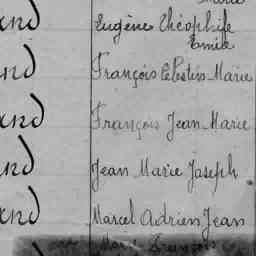 Marie
and Eugène Théophile
Emile
and François Célestin Marie
and François Jean Marie
and Jean Marie Joseph
and Marcel Adrien Jean
Marie François